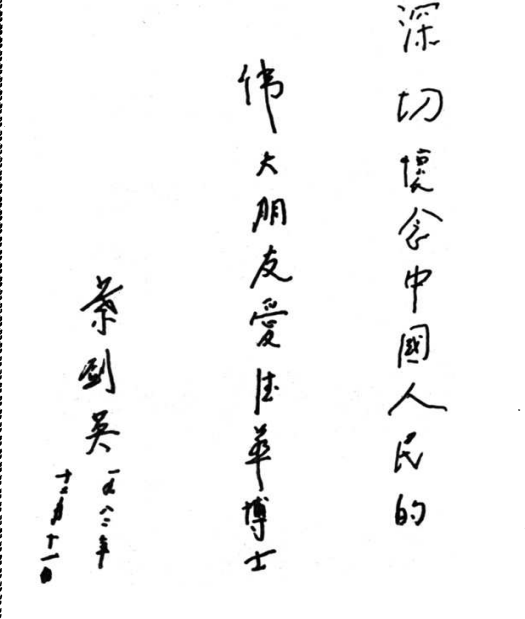 深切懷念中國人民的
伟大朋友愛德華博士
葉劍英
一九八二年
十二月十一日